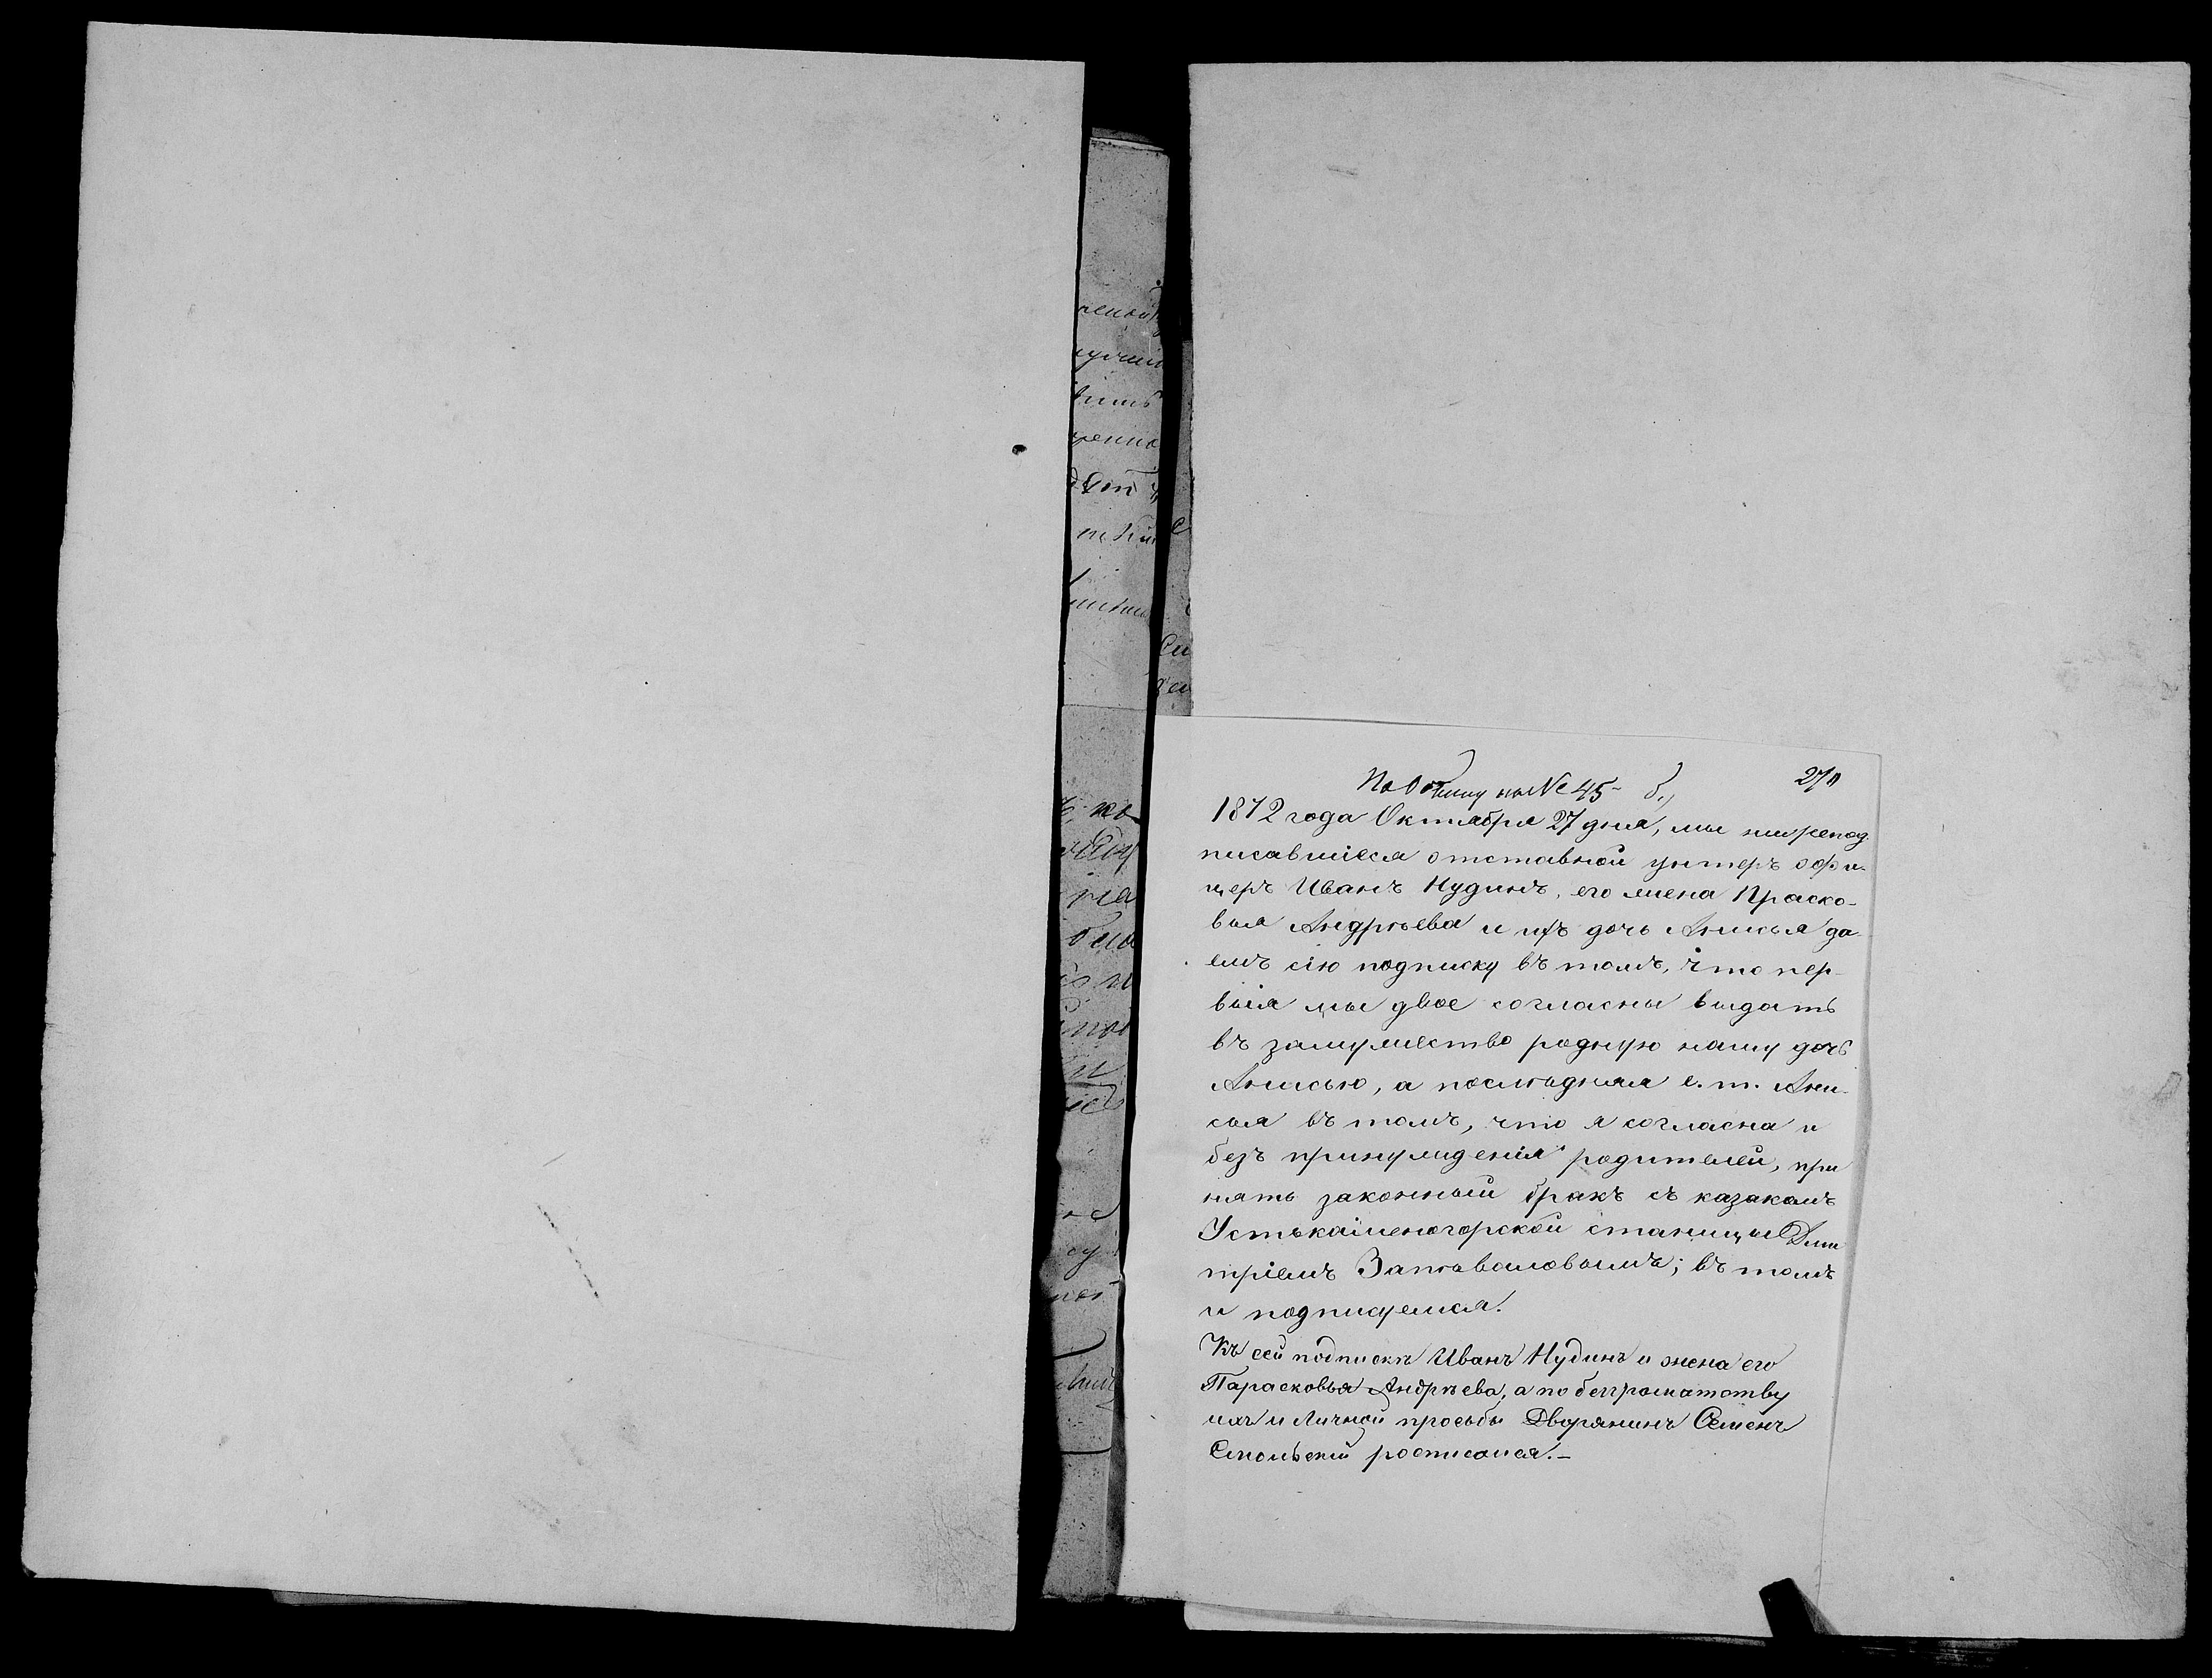 По Обыску на № 45- б.,
27
1872 года Октября 27 дня, мы нижепод-
писавшіеся отставной унтеръ офи-
церъ Иванъ Нудинъ, его жена Праско-
вья Андрѣева и ихъ дочь Анисья да-
емъ сію подписку въ томъ, что пер-
выя мы двое согласны выдать
въ замужество родную нашу дочь
Анисью, а послѣдняя е. т. Ани-
сья въ томъ, что я согласна и
безъ принужденія родителей, при
нять законный бракъ съ казакомъ
Устькаменогорской станицы Дми
тріемъ Запѣваловымъ; въ томъ
и подписуемся.
Къ сей подпискѣ Иванъ Нудинъ и жена его
Парасковья Андрѣева, а по безграматству
ихъ и личной просьбы Дворянинъ Семенъ
Смольскій росписался.-